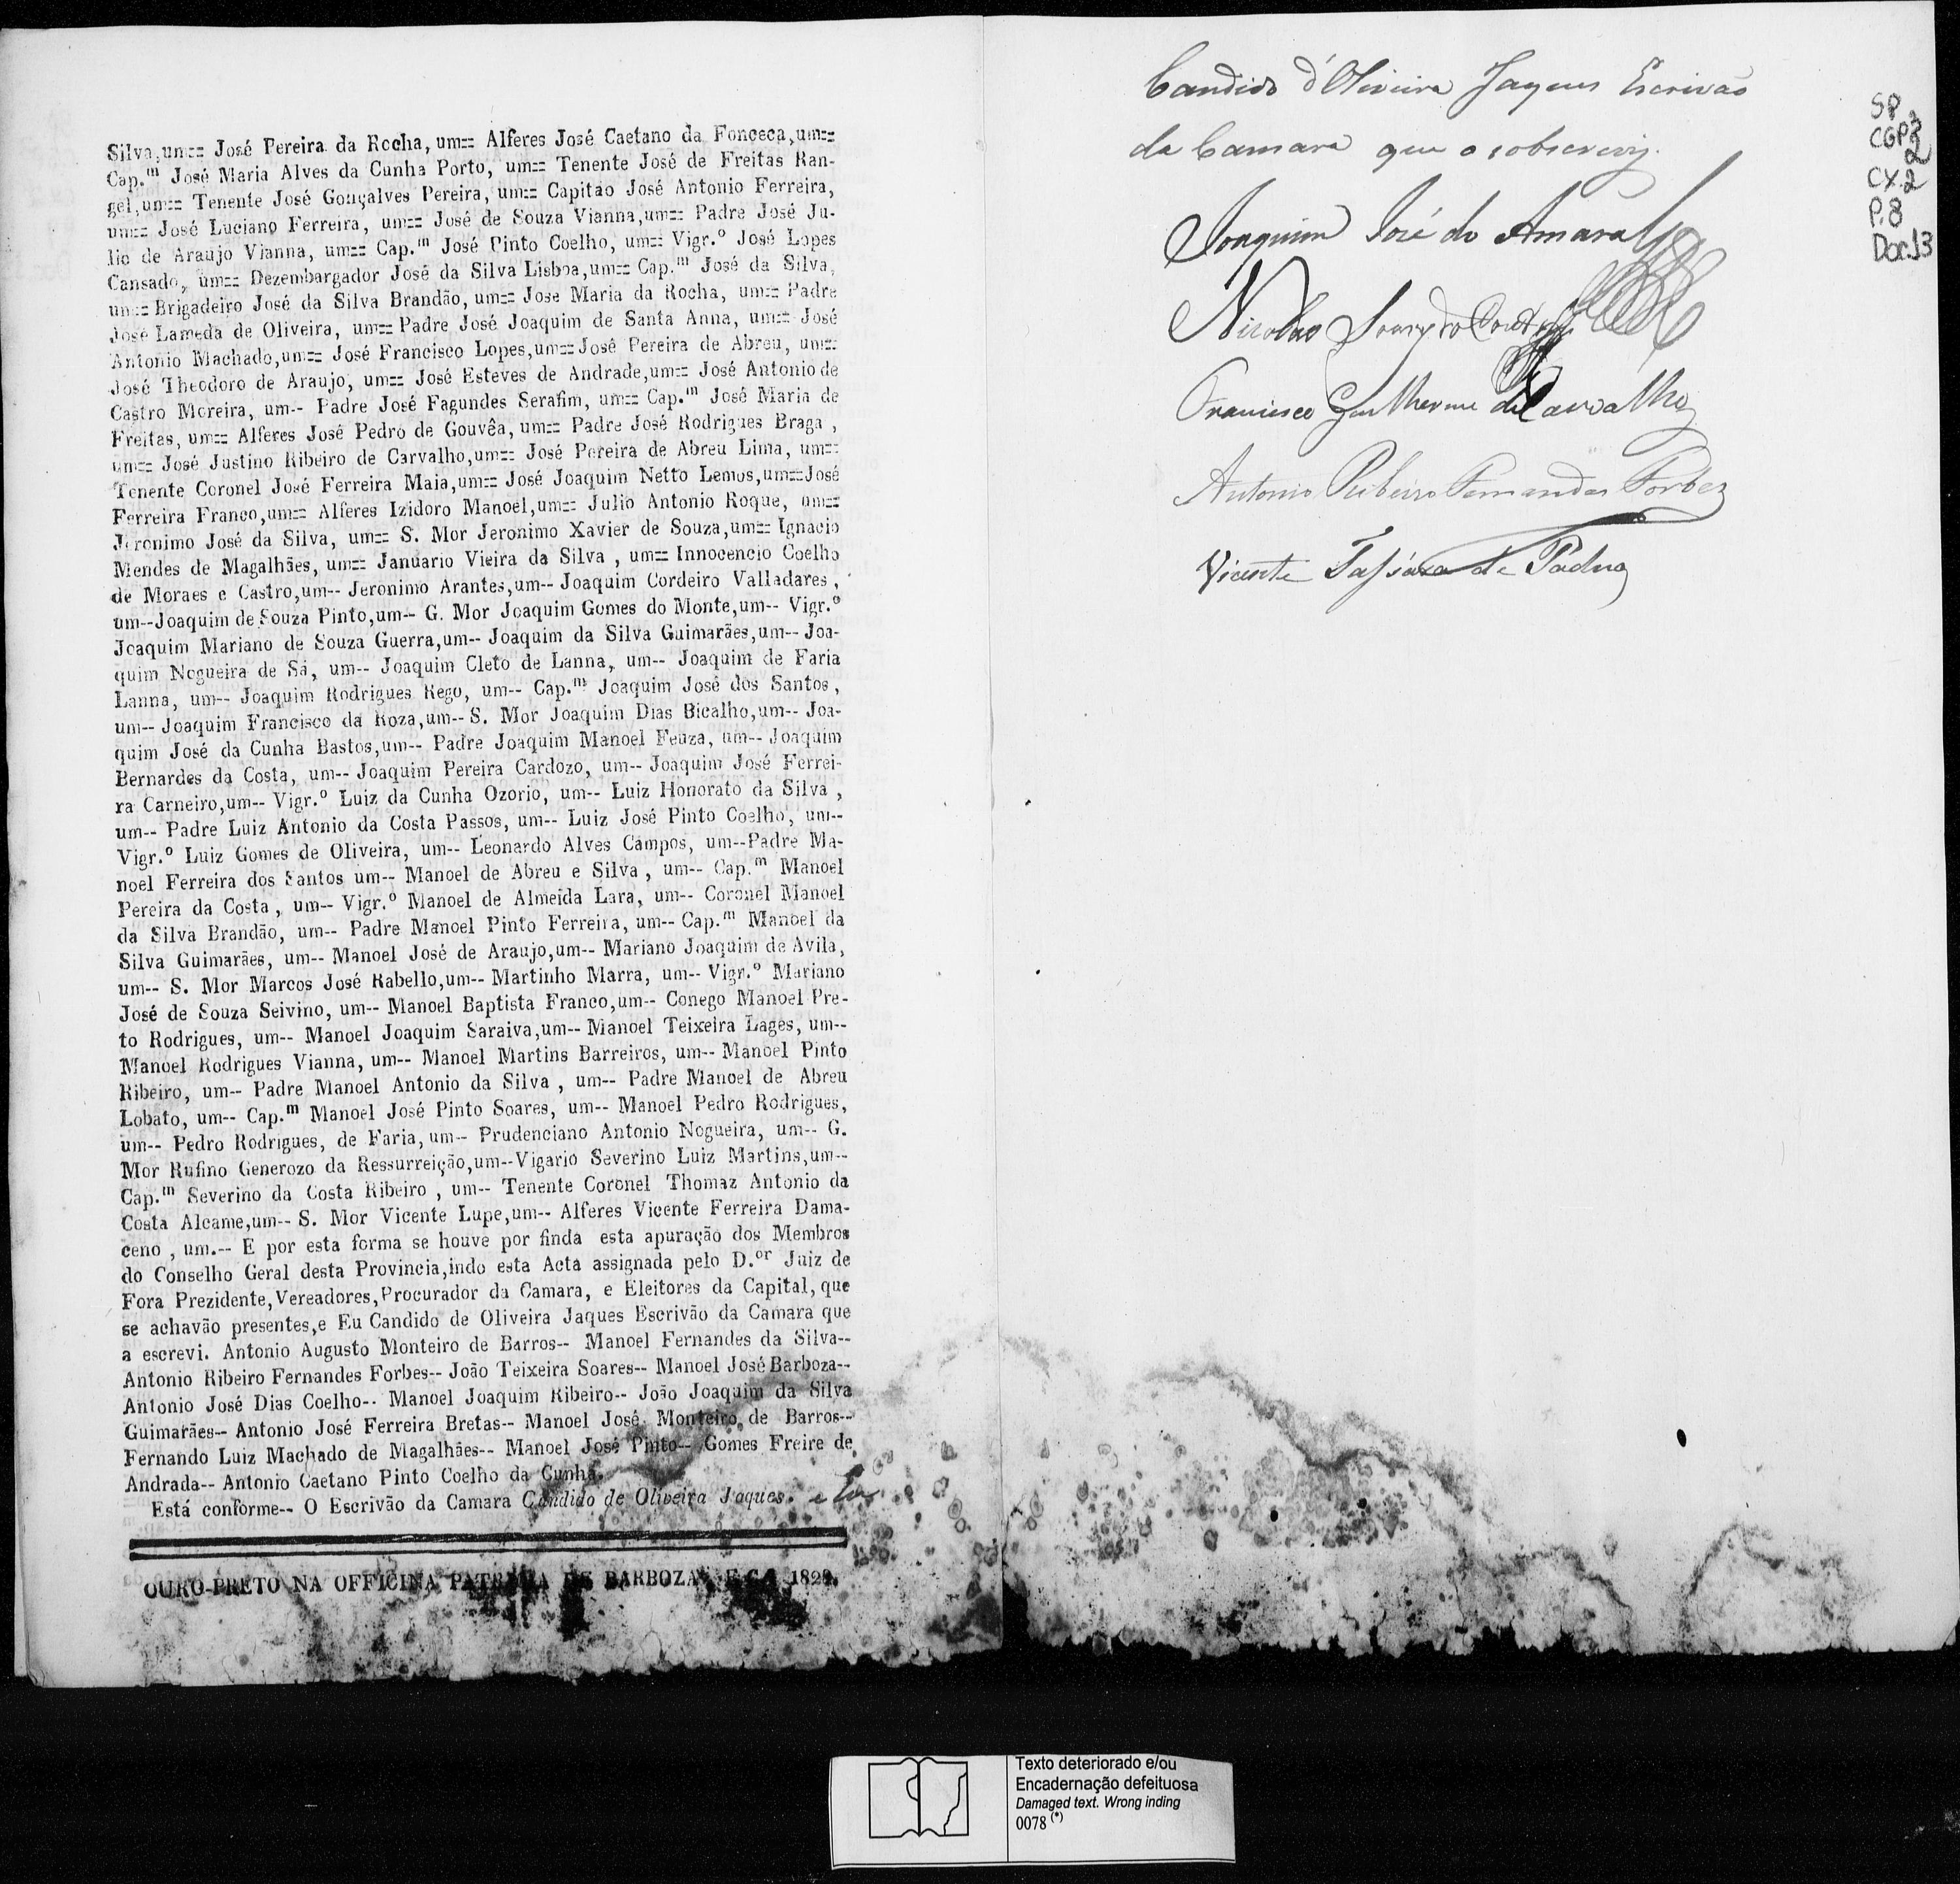 Silva, um== José Pereira da Rocha, um== Alferes José Caetano da Fonceca, um==
Cap.m José Maria Alves da Cunha Porto, um== Tenente José de Freitas Ran-
gel, um== Tenente José Gonçalves Pereira, um== Capitão José Antonio Ferreira,
um== José Luciano Ferreira, um== José de Souza Vianna, um== Padre José Ju-
lio de Araujo Vianna, um== Cap.m José Pinto Coelho, um== Vigr.o José Lopes
Cansado, um== Dezembargador José da Silva Lisboa, um== Cap.m José da Silva,
um== Brigadeiro José da Silva Brandão, um== Jose Maria da Rocha, um== Padre
José Lameda de Oliveira, um== Padre José Joaquim de Santa Anna, um== José
Antonio Machado, um== José Francisco Lopes, um== José Pereira de Abreu, um==
José Theodoro de Araujo, um== José Esteves de Andrade, um== José Antonio de
Castro Moreira, um-- Padre José Fagundes Serafim, um== Cap.m José Maria de
Freitas, um== Alferes José Pedro de Gouvêa, um== Padre José Rodrigues Braga ,
um== José Justino Ribeiro de Carvalho, um== José Pereira de Abreu Lima, um==
Tenente Coronel José Ferreira Maia, um== José Joaquim Netto Lemos, um==José
Ferreira Franco, um== Alferes Izidoro Manoel, um== Julio Antonio Roque, um==
Jeronimo José da Silva, um== S. Mor Jeronimo Xavier de Souza, um== Ignacio
Mendes de Magalhães, um== Januario Vieira da Silva , um== Innocencio Coelho
de Moraes e Castro, um-- Jeronimo Arantes, um-- Joaquim Cordeiro Valladares ,
um--Joaquim de Souza Pinto, um-- G. Mor Joaquim Gomes do Monte, um-- Vigr.o
Joaquim Mariano de Souza Guerra, um-- Joaquim da Silva Guimarães, um-- Joa-
quim Nogueira de Sá, um-- Joaquim Cleto de Lanna, um-- Joaquim de Faria
Lanna, um-- Joaquim Rodrigues Rego, um-- Cap.m Joaquim José dos Santos ,
um-- Joaquim Francisco da Roza, um-- S. Mor Joaquim Dias Bicalho, um-- Joa-
quim José da Cunha Bastos, um-- Padre Joaquim Manoel Feuza, um-- Joaquim
Bernardes da Costa, um-- Joaquim Pereira Cardozo, um-- Joaquim José Ferrei-
ra Carneiro, um-- Vigr.o Luiz da Cunha Ozorio, um-- Luiz Honorato da Silva ,
um-- Padre Luiz Antonio da Costa Passos, um-- Luiz José Pinto Coelho, um--
Vigr.o Luiz Gomes de Oliveira, um-- Leonardo Alves Campos, um--Padre Ma-
noel Ferreira dos Santos um-- Manoel de Abreu e Silva , um-- Cap.m Manoel
Pereira da Costa , um-- Vigr.o Manoel de Almeida Lara, um-- Coronel Manoel
da Silva Brandão, um-- Padre Manoel Pinto Ferreira, um-- Cap.m Manoel da
Silva Guimarães, um-- Manoel José de Araujo, um-- Mariano Joaquim de Avila,
um-- S. Mor Marcos José Rabello, um-- Martinho Marra, um-- Vigr.o Mariano
José de Souza Seivino, um-- Manoel Baptista Franco, um-- Conego Manoel Pre-
to Rodrigues, um-- Manoel Joaquim Saraiva, um-- Manoel Teixeira Lages, um--
Manoel Rodrigues Vianna, um-- Manoel Martins Barreiros, um-- Manoel Pinto
Ribeiro, um-- Padre Manoel Antonio da Silva , um-- Padre Manoel de Abreu
Lobato, um-- Cap.m Manoel José Pinto Soares, um-- Manoel Pedro Rodrigues,
um-- Pedro Rodrigues, de Faria, um-- Prudenciano Antonio Nogueira, um-- G.
Mor Rufino Generozo da Ressurreição, um--Vigario Severino Luiz Martins, um--
Cap.m Severino da Costa Ribeiro , um-- Tenente Coronel Thomaz Antonio da
Costa Alcame, um-- S. Mor Vicente Lupe, um-- Alferes Vicente Ferreira Dama-
ceno , um.-- E por esta forma se houve por finda esta apuração dos Membros
do Conselho Geral desta Provincia, indo esta Acta assignada pelo D.or Juiz de
Fora Prezidente, Vereadores, Procurador da Camara, e Eleitores da Capital, que
se achavão presentes, e Eu Candido de Oliveira Jaques Escrivão da Camara que
a escrevi. Antonio Augusto Monteiro de Barros-- Manoel Fernandes da Silva--
Antonio Ribeiro Fernandes Forbes-- João Teixeira Soares-- Manoel José Barboza--
Antonio José Dias Coelho-- Manoel Joaquim Ribeiro-- João Joaquim da Silva
Guimarães-- Antonio José Ferreira Bretas-- Manoel José Monteiro de Barros--
Fernando Luiz Machado de Magalhães-- Manoel José Pinto-- Gomes Freire de
Andrada-- Antonio Caetano Pinto Coelho da Cunha.
Está conforme-- O Escrivão da Camara Candido de Oliveira Jaques. e Eu
OURO-PRETO NA OFFICINA PATRICIA DE BARBOZA E C.a 182
Candido d'Oliveira Jaques Escrivão
da Camara que o sobscrevy.
Joaquim José do Amaral
Nicolao Soares do Couto
Francisco Guilherme de Carvalho
Antonio Ribeiro Fernandes Forbes
Vicente de Padua
SP
CGP 2
CX.2
P.8
Doc.13
Texto deteriorado e/ou
Encadernação defeituosa
Damaged text. Wrong inding
0078 (*)